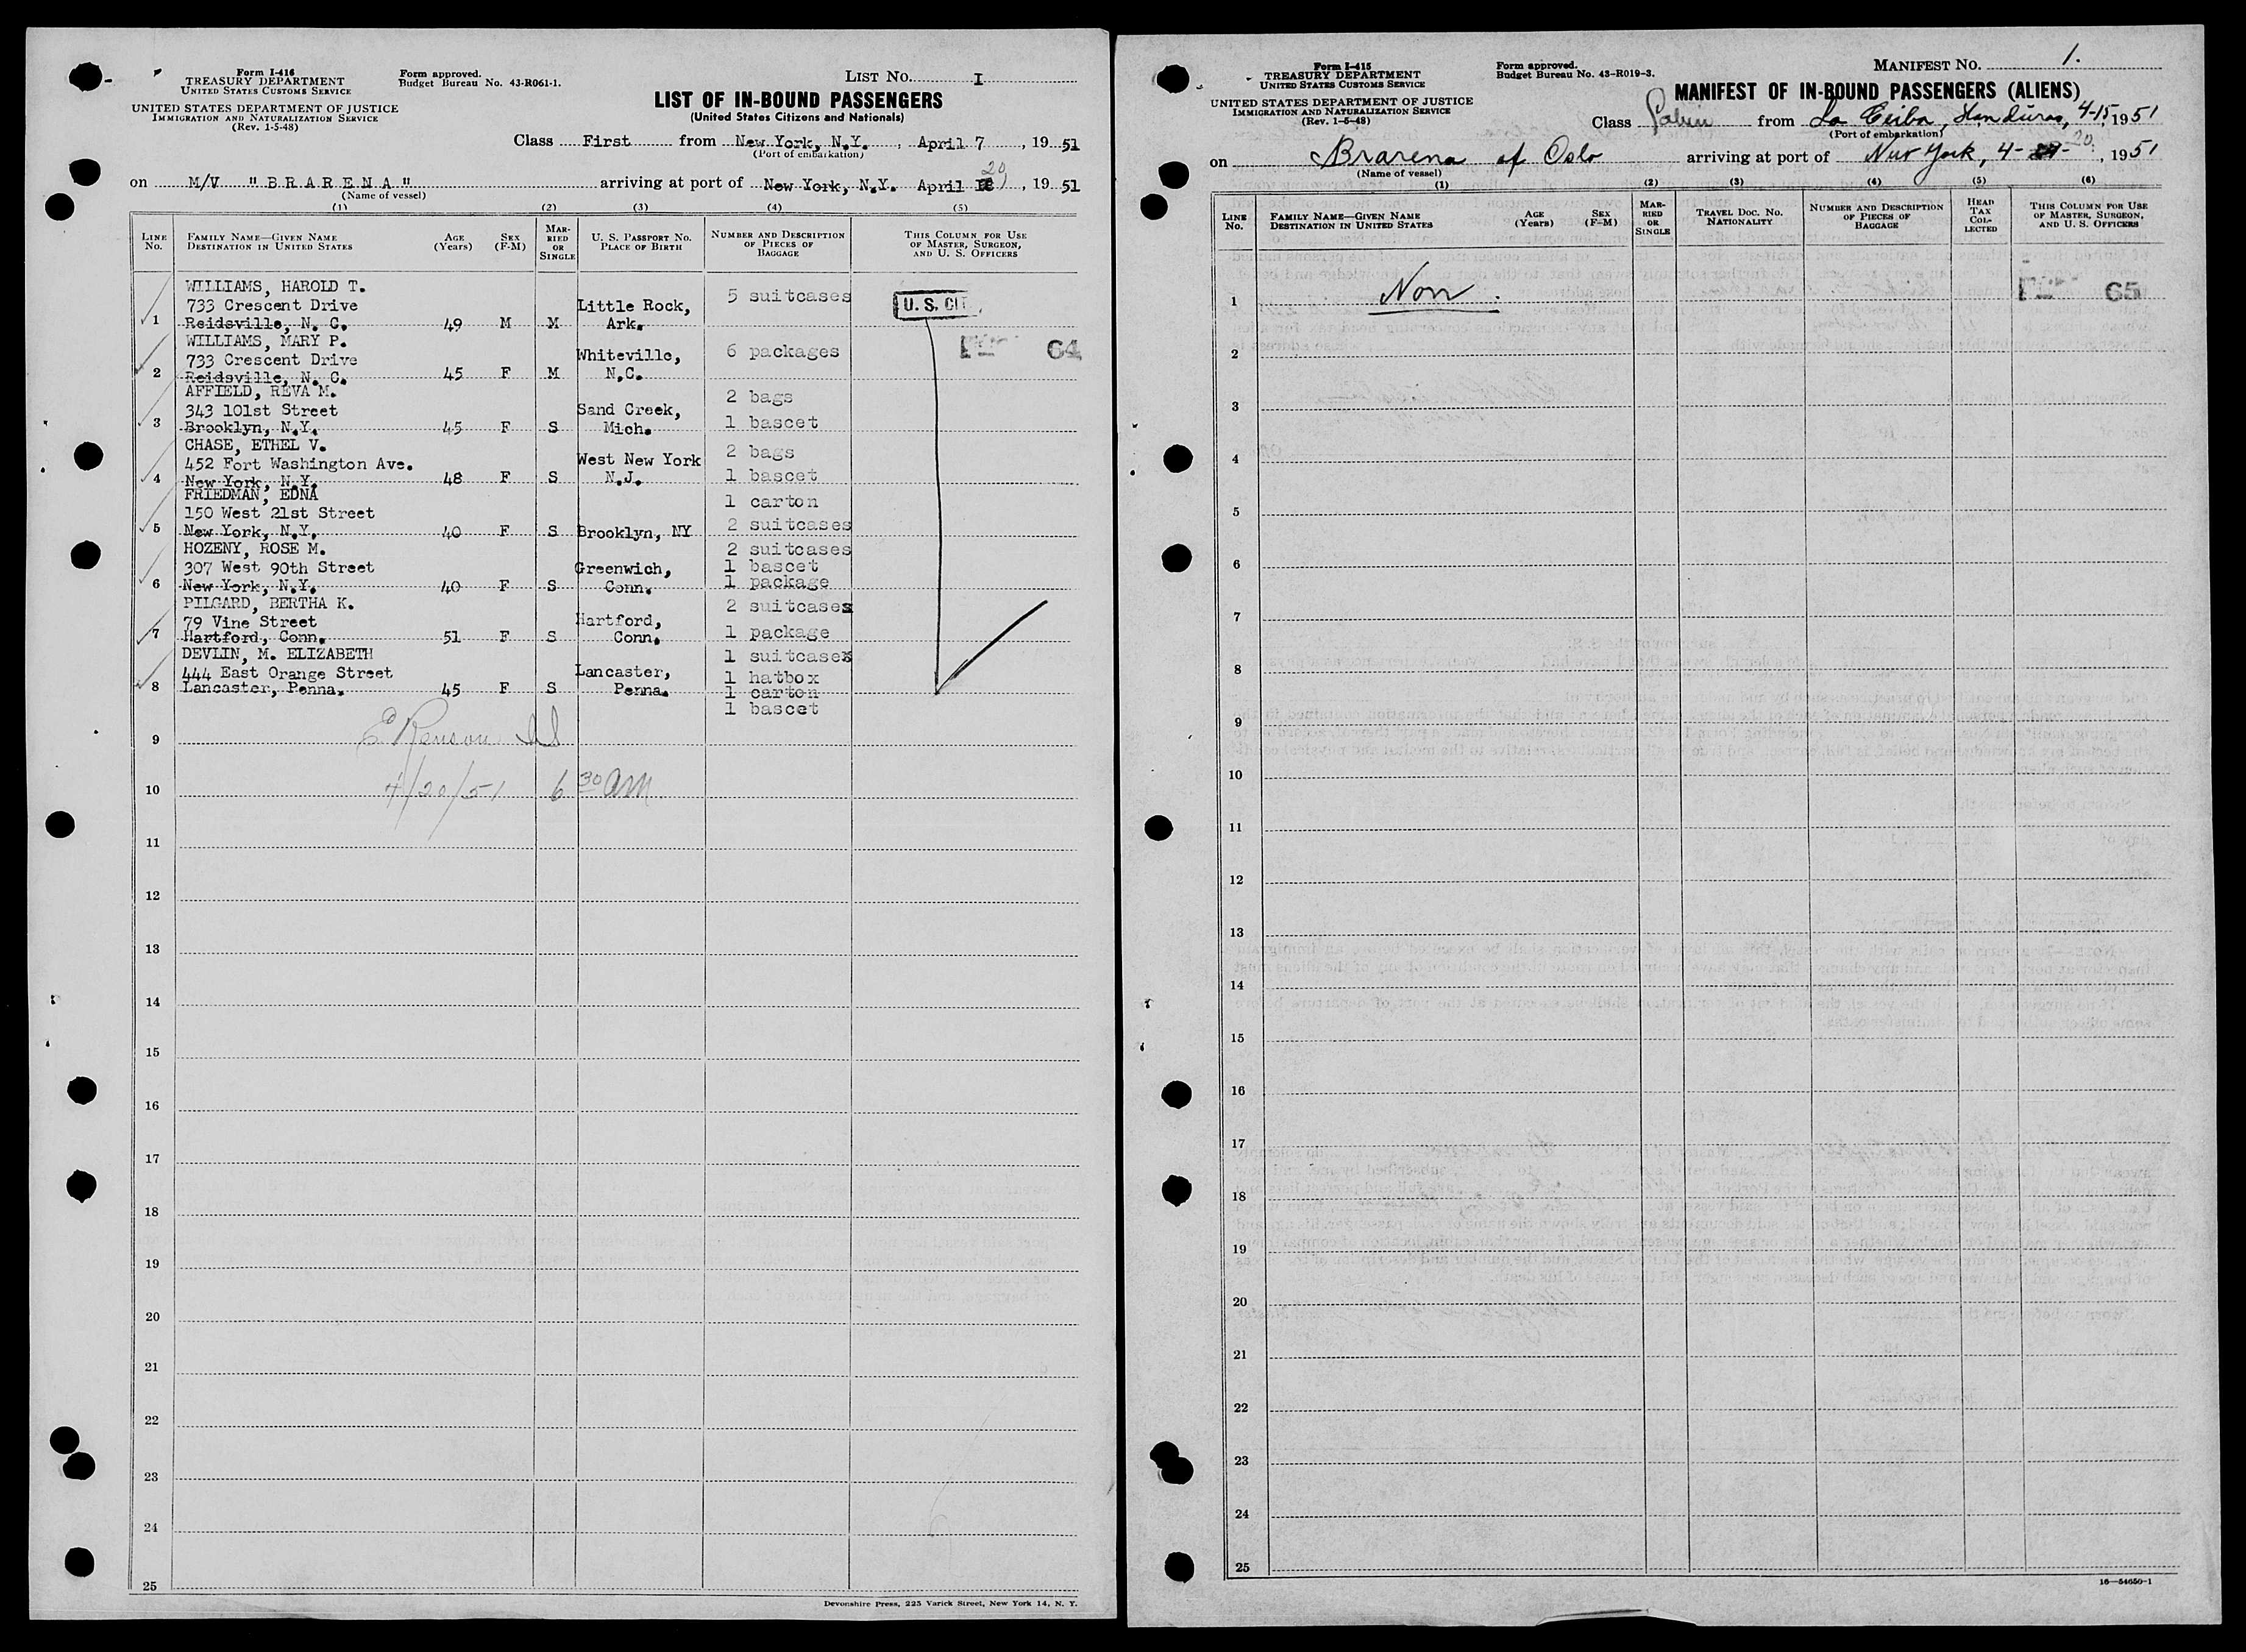 Form I-416
TREASURY DEPARTMENT
UNITED STATES CUSTOMS SERVICE
Form approved.
Budget Bureau No. 43-R061-1.
LIST No. I
UNITED STATES DEPARTMENT OF JUSTICE
IMMIGRATION AND NATURALIZATION SERVICE
(Rev. 1-5-48)
LIST OF IN-BOUND PASSENGERS
(United States Citizens and Nationals)
Class First from New York, N.Y., April 7, 1951
(Port of embarkation)
on M/V "BRARENA" arriving at port of New York, N.Y. April 20, 1951
(Name of vessel)
(1) (2) (3) (4) (5)
LINE No. FAMILY NAME—GIVEN NAME DESTINATION IN UNITED STATES AGE (Years) SEX (F-M) MARRIED OR SINGLE U. S. PASSPORT No. PLACE OF BIRTH NUMBER AND DESCRIPTION OF PIECES OF BAGGAGE THIS COLUMN FOR USE OF MASTER, SURGEON, AND U. S. OFFICERS
WILLIAMS, HAROLD T.
733 Crescent Drive Little Rock, 5 suitcases U. S. CIT
1 Reidsville, N. C. 49 M M Ark.
WILLIAMS, MARY P.
733 Crescent Drive Whiteville, 6 packages 64
2 Reidsville, N. C. 45 F M N.C.
AFFIELD, REVA M. 2 bags
343 101st Street Sand Creek,
3 Brooklyn, N.Y. 45 F S Mich. 1 bascet
CHASE, ETHEL V. 2 bags
452 Fort Washington Ave. West New York
4 New York, N.Y. 48 F S N.J. 1 bascet
FRIEDMAN, EDNA 1 carton
150 West 21st Street 2 suitcases
5 New York, N.Y. 40 F S Brooklyn, NY
HOZENY, ROSE M. 2 suitcases
307 West 90th Street Greenwich, 1 bascet
6 New York, N.Y. 40 F S Conn. 1 package
PILGARD, BERTHA K. 2 suitcases
79 Vine Street Hartford,
7 Hartford, Conn. 51 F S Conn. 1 package
DEVLIN, M. ELIZABETH 1 suitcase
444 East Orange Street Lancaster, 1 hatbox
8 Lancaster, Penna. 45 F S Penna. 1 carton
1 bascet
9
4/20/51 6 30 am
10
11
12
13
14
15
16
17
18
19
20
21
22
23
24
25
Devonshire Press, 225 Varick Street, New York 14, N. Y.
Form I-415
TREASURY DEPARTMENT
UNITED STATES CUSTOMS SERVICE
Form approved.
Budget Bureau No. 43-R019-3.
MANIFEST No. 1.
UNITED STATES DEPARTMENT OF JUSTICE
IMMIGRATION AND NATURALIZATION SERVICE
(Rev. 1-5-48)
MANIFEST OF IN-BOUND PASSENGERS (ALIENS)
Class from La Ceiba, Honduras, 4-15, 1951
(Port of embarkation)
on Brarena of Oslo arriving at port of New York, 4-20, 1951
(Name of vessel)
(1) (2) (3) (4) (5) (6)
LINE No. FAMILY NAME—GIVEN NAME DESTINATION IN UNITED STATES AGE (Years) SEX (F-M) MARRIED OR SINGLE TRAVEL DOC. No. NATIONALITY NUMBER AND DESCRIPTION OF PIECES OF BAGGAGE HEAD TAX COLLECTED THIS COLUMN FOR USE OF MASTER, SURGEON, AND U. S. OFFICERS
1 Non. 65
2
3
4
5
6
7
8
9
10
11
12
13
14
15
16
17
18
19
20
21
22
23
24
25
16—54650-1